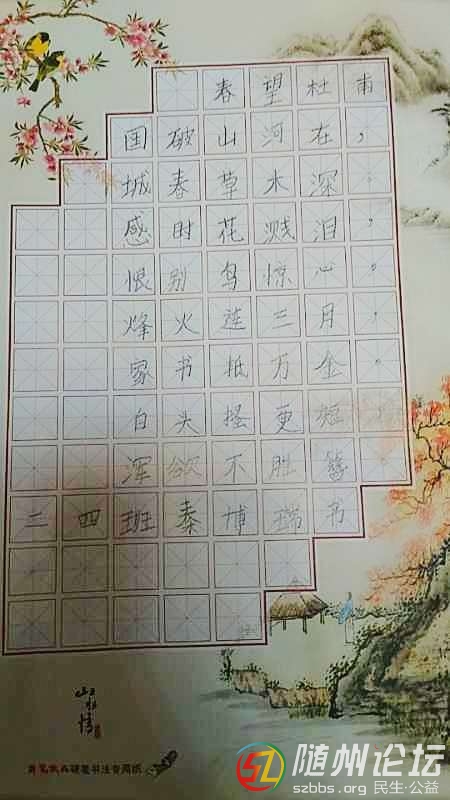 春望杜甫
国破山河在，
城春草木深。
感时花溅泪，
恨别鸟惊心。
烽火连三月，
家书抵万金。
白头搔更短，
浑欲不胜簪。
三四班秦博瑞书
山水情
硬笔书法专用纸
随州论坛
szbbs.org 民生·公益